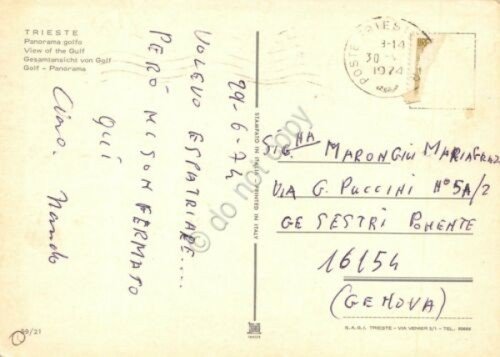 TRIESTE
Panorama golfo
View of the Gulf
Gesamtansicht von Golf
Golf - Panorama
29-6-74
VOLEVO ESPATRIARE...
PERÒ MI SON FERMATO
QUÌ
Ciao. Nando
STAMPATO IN ITALIA - PRINTED IN ITALY
POSTE TRIESTE
-14
30
1974
SIG.NA MARONGIU MARIAGRAZIA
VIA G. PUCCINI N° 5A/2
GE SESTRI PONENTE
16154
(GENOVA)
39/21
TRIESTE
VIA VENIER 5/1 - TEL.
do not copy